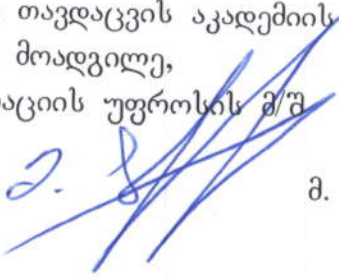 თავდაცვის აკადემიის
მოადგილე,
აციის უფროსის მ/შ
მ.